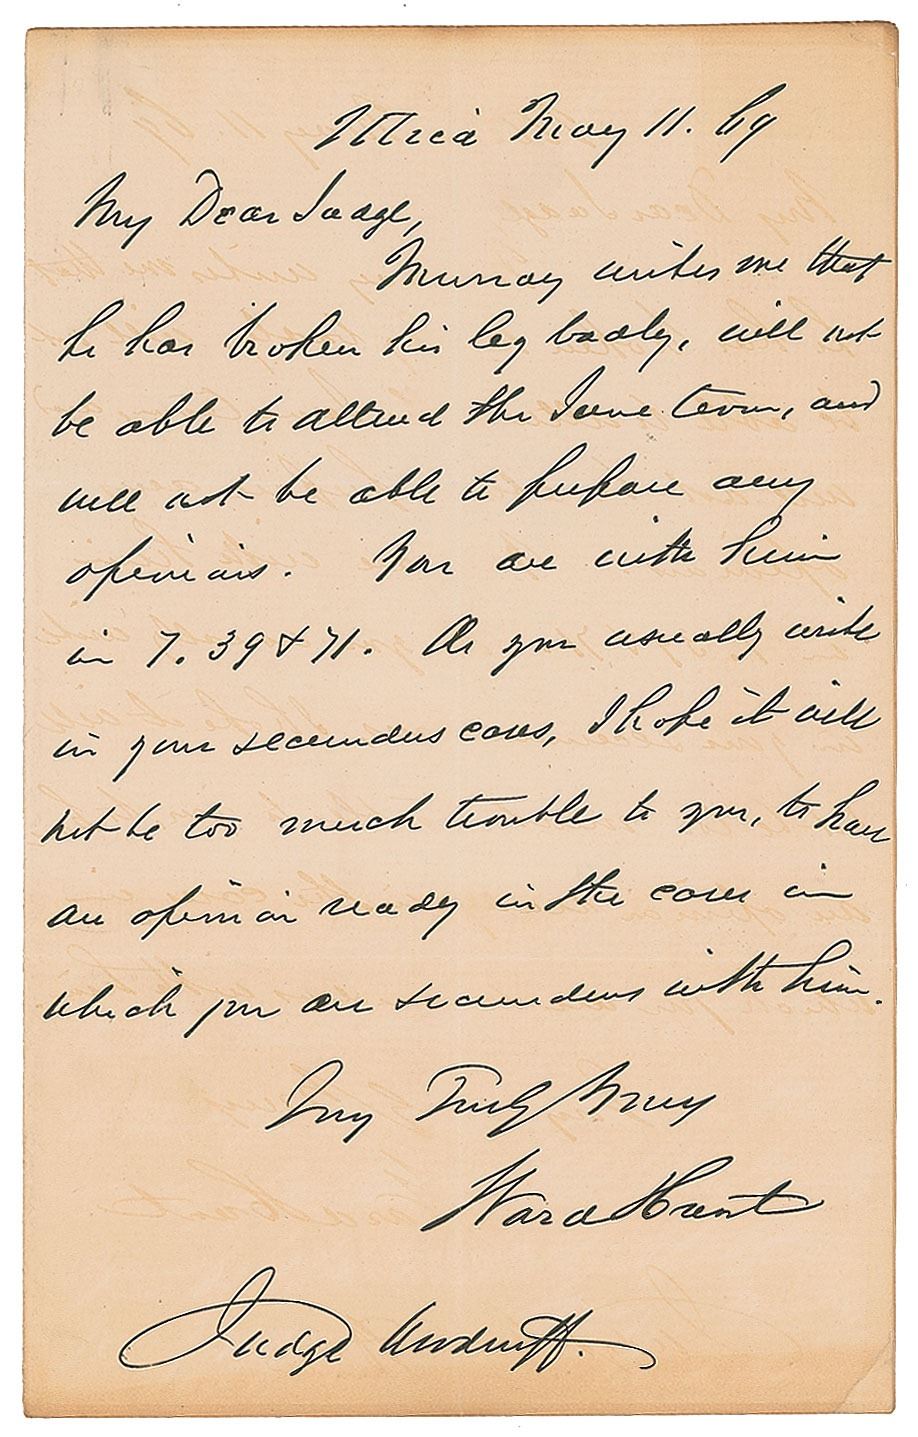 Utica May 11. 69
My Dear Judge,
Murray writes me that
he has broken his leg badly, will not
be able to attend the June term, and
will not be able to prepare any
opinions. You are with him
in 7. 39 & 71. As you usually write
in your secundus cases, I hope it will
not be too much trouble to you, to have
an opinion ready in the cases in
which you are secundus with him.
Truly Yours
Ward Hunt
Judge Woodruff.